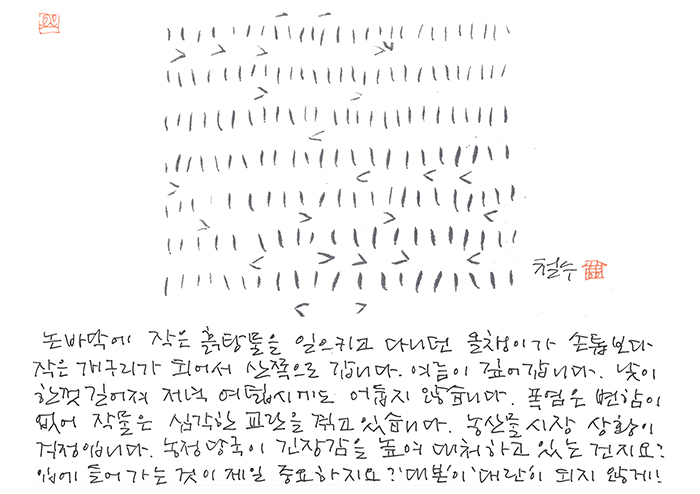 철수
논바닥에 작은 흙탕물을 일으키고 다니던 올챙이가 손톱보다
작은 개구리가 되어서 산쪽으로 갑니다. 여름이 깊어갑니다. 낮이
한껏 길어져 저녁 여덟시에도 어둡지 않습니다. 폭염은 변함이
없어 작물은 심각한 피란을 겪고 있습니다. 농산물 시장 상황이
걱정입니다. 농정당국이 긴장감을 높여 대처하고 있는 건지요?
입에 들어가는 것이 제일 중요하지요? '대본'이 '대란'이 되지 않게!